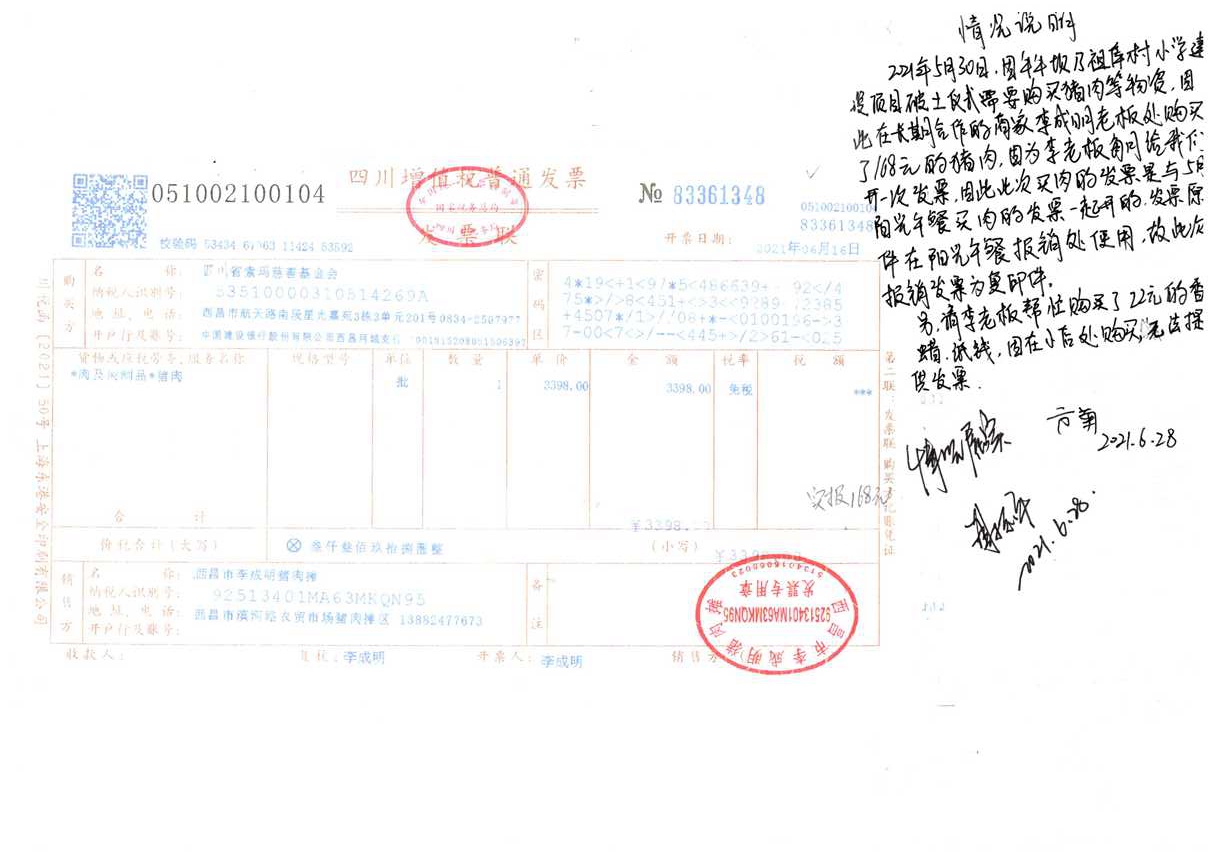 情况说明
2021年5月30日,因牛牛坝乃祖库村小学建
设项目破土仪式需要购买猪肉等物资,因
此在长期合作的商家李成明老板处购买
了168元的猪肉,因为李老板每月给我们
开一次发票,因此此次买肉的发票是与5月
阳光午餐买肉的发票一起开的,发票原
件在阳光午餐报销处使用,故此次
报销发票为复印件。
另,请李老板帮忙购买了22元的香
蜡、纸钱,因在小店处购买,无法提
供发票.
方菊
2021.6.28
2021.6.28.
051002100104
四川增值税普通发票
发票联
国家税务总局
№ 83361348
051002100104
83361348
校验码 53434 6 963 11424 53592
开票日期: 2021年06月16日
购买方
名 称: 四川省索玛慈善基金会
纳税人识别号: 53510000310514269A
地 址、电 话: 西昌市航天路南段星光嘉苑3栋2单元201号0834-2507977
开户行及账号: 中国建设银行股份有限公司西昌月城支行
密码区
4*19<+1<9/*5<486639+- 92</4
75*>/>8<451+<>3<<9?89-72385
+4507*/1>//08+*-<0100196->3
7-00<7<>/--<445+>/2>61-<025
货物或应税劳务、服务名称 规格型号 单位 数 量 单 价 金 额 税率 税 额
*肉及肉制品*猪肉 批 1 3398.00 3398.00 免税 ***
实报168元
合 计 ￥3398.00
价税合计(大写) ⊗ 叁仟叁佰玖拾捌圆整 (小写) ￥3398.00
销售方
名 称: 西昌市李成明猪肉摊
纳税人识别号: 92513401MA63MKQN95
地 址、电 话: 西昌市滨河路农贸市场猪肉摊区 13882477673
开户行及账号:
备注
收款人: 复核: 李成明 开票人: 李成明 销售方
西昌市李成明猪肉摊
92513401MA63MKQN95
发票专用章
5134016060023
第二联:发票联 购买方记账凭证
[2021] 50号 上海东港安全印刷有限公司